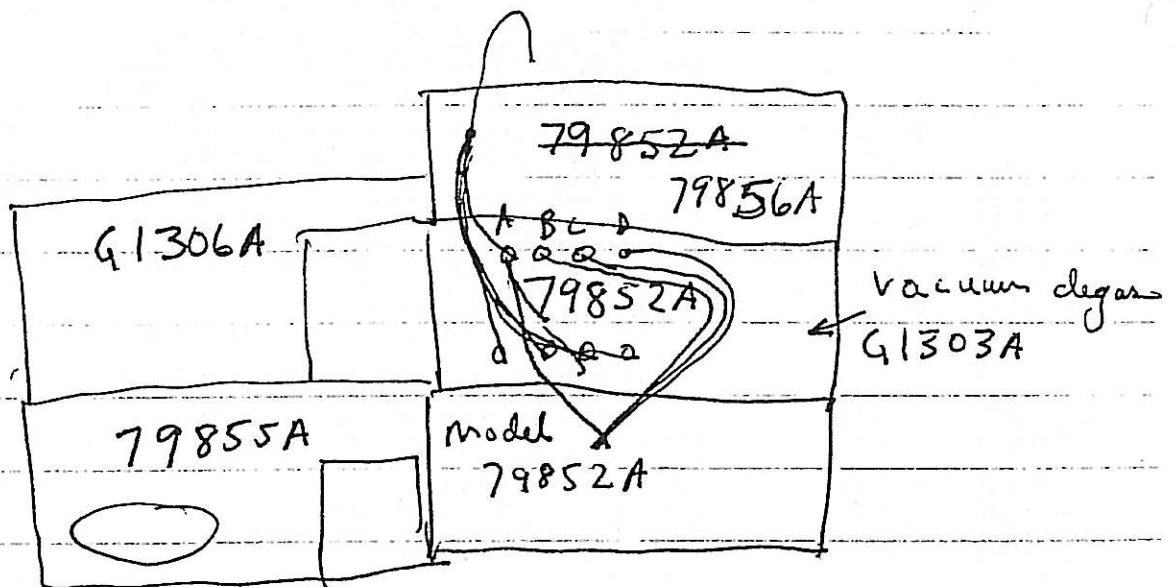 79852A
79856A
G1306A
A B C D
79852A
vacuum degas
G1303A
79855A
Model
79852A